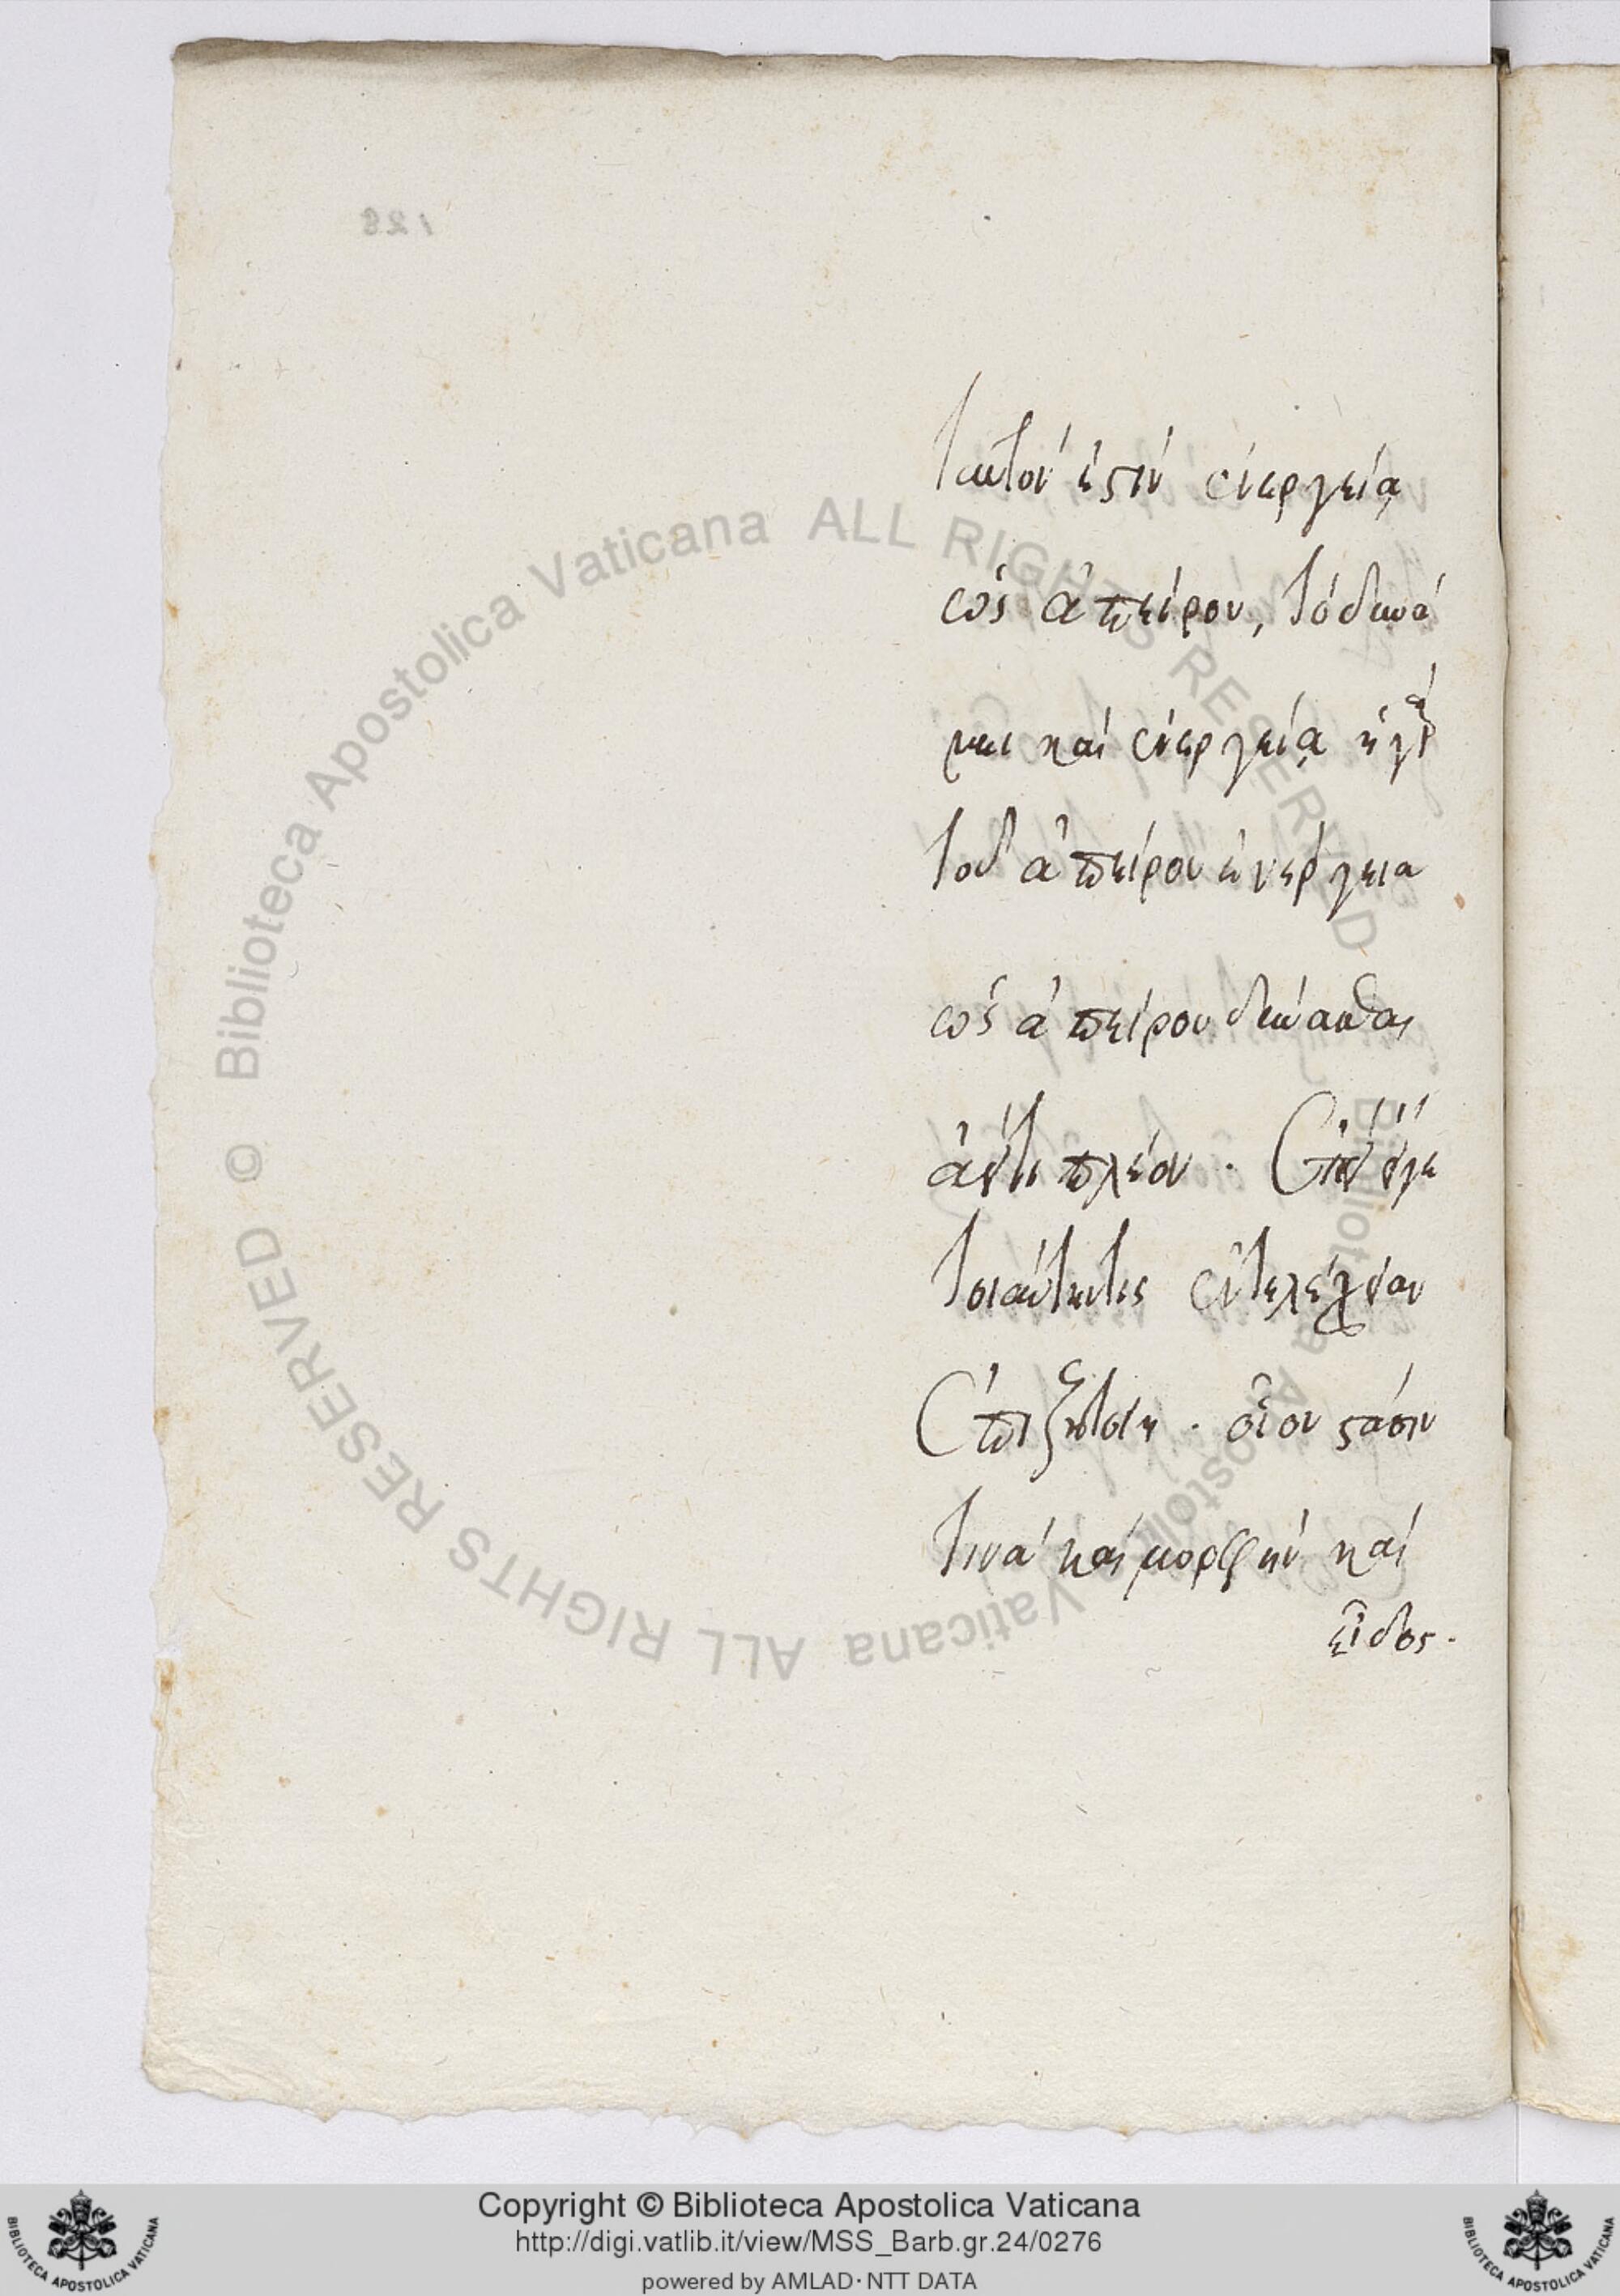 ταυτόν ἐστιν ἐνεργείᾳ
ὡς ἀπείρου, τὸ δυνά
μει καὶ ἐνεργείᾳ ἡ γὰρ
τοῦ ἀπείρου ἐνέργεια
ὡς ἀπείρου δύνασθαι
ἀντι πλέον .
τοιαύτην τις ἐντελέχειαν
ἐπιζητοίη . οἷον στάσιν
τινὰ καὶ μορφὴν καὶ
εἶδος .
128
© Biblioteca Apostolica Vaticana ALL RIGHTS RESERVED
© Biblioteca Apostolica Vaticana ALL RIGHTS RESERVED
Copyright © Biblioteca Apostolica Vaticana
http://digi.vatlib.it/view/MSS_Barb.gr.24/0276
powered by AMLAD·NTT DATA
BIBLIOTECA APOSTOLICA VATICANA
BIBLIOTECA APOSTOLICA VATICANA